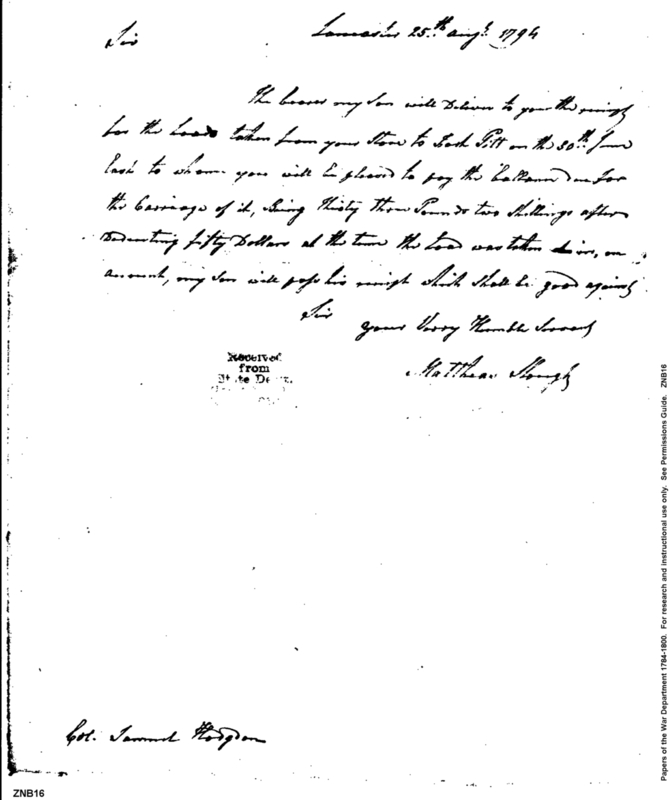 Lancaster 25th augt. 1794
Sir
The bearer my Son will Deliver to you the receipt
for the Load taken from your Store to Fort Pitt on the 30th. June
last to whom you will be pleased to pay the ballance due for
the Carriage of it, Being thirty three Pounds two Shillings after
Deducting fifty Dollars at the time the Load was taken in, on
account, my Son will pass his receipt which shall be good against
Sir
your Verry Humble Servant
Matthew Slough
Received
from
State Dept.
Col. Samuel Hodgdon
ZNB16
Papers of the War Department 1784-1800. For research and instructional use only. See Permissions Guide. ZNB16